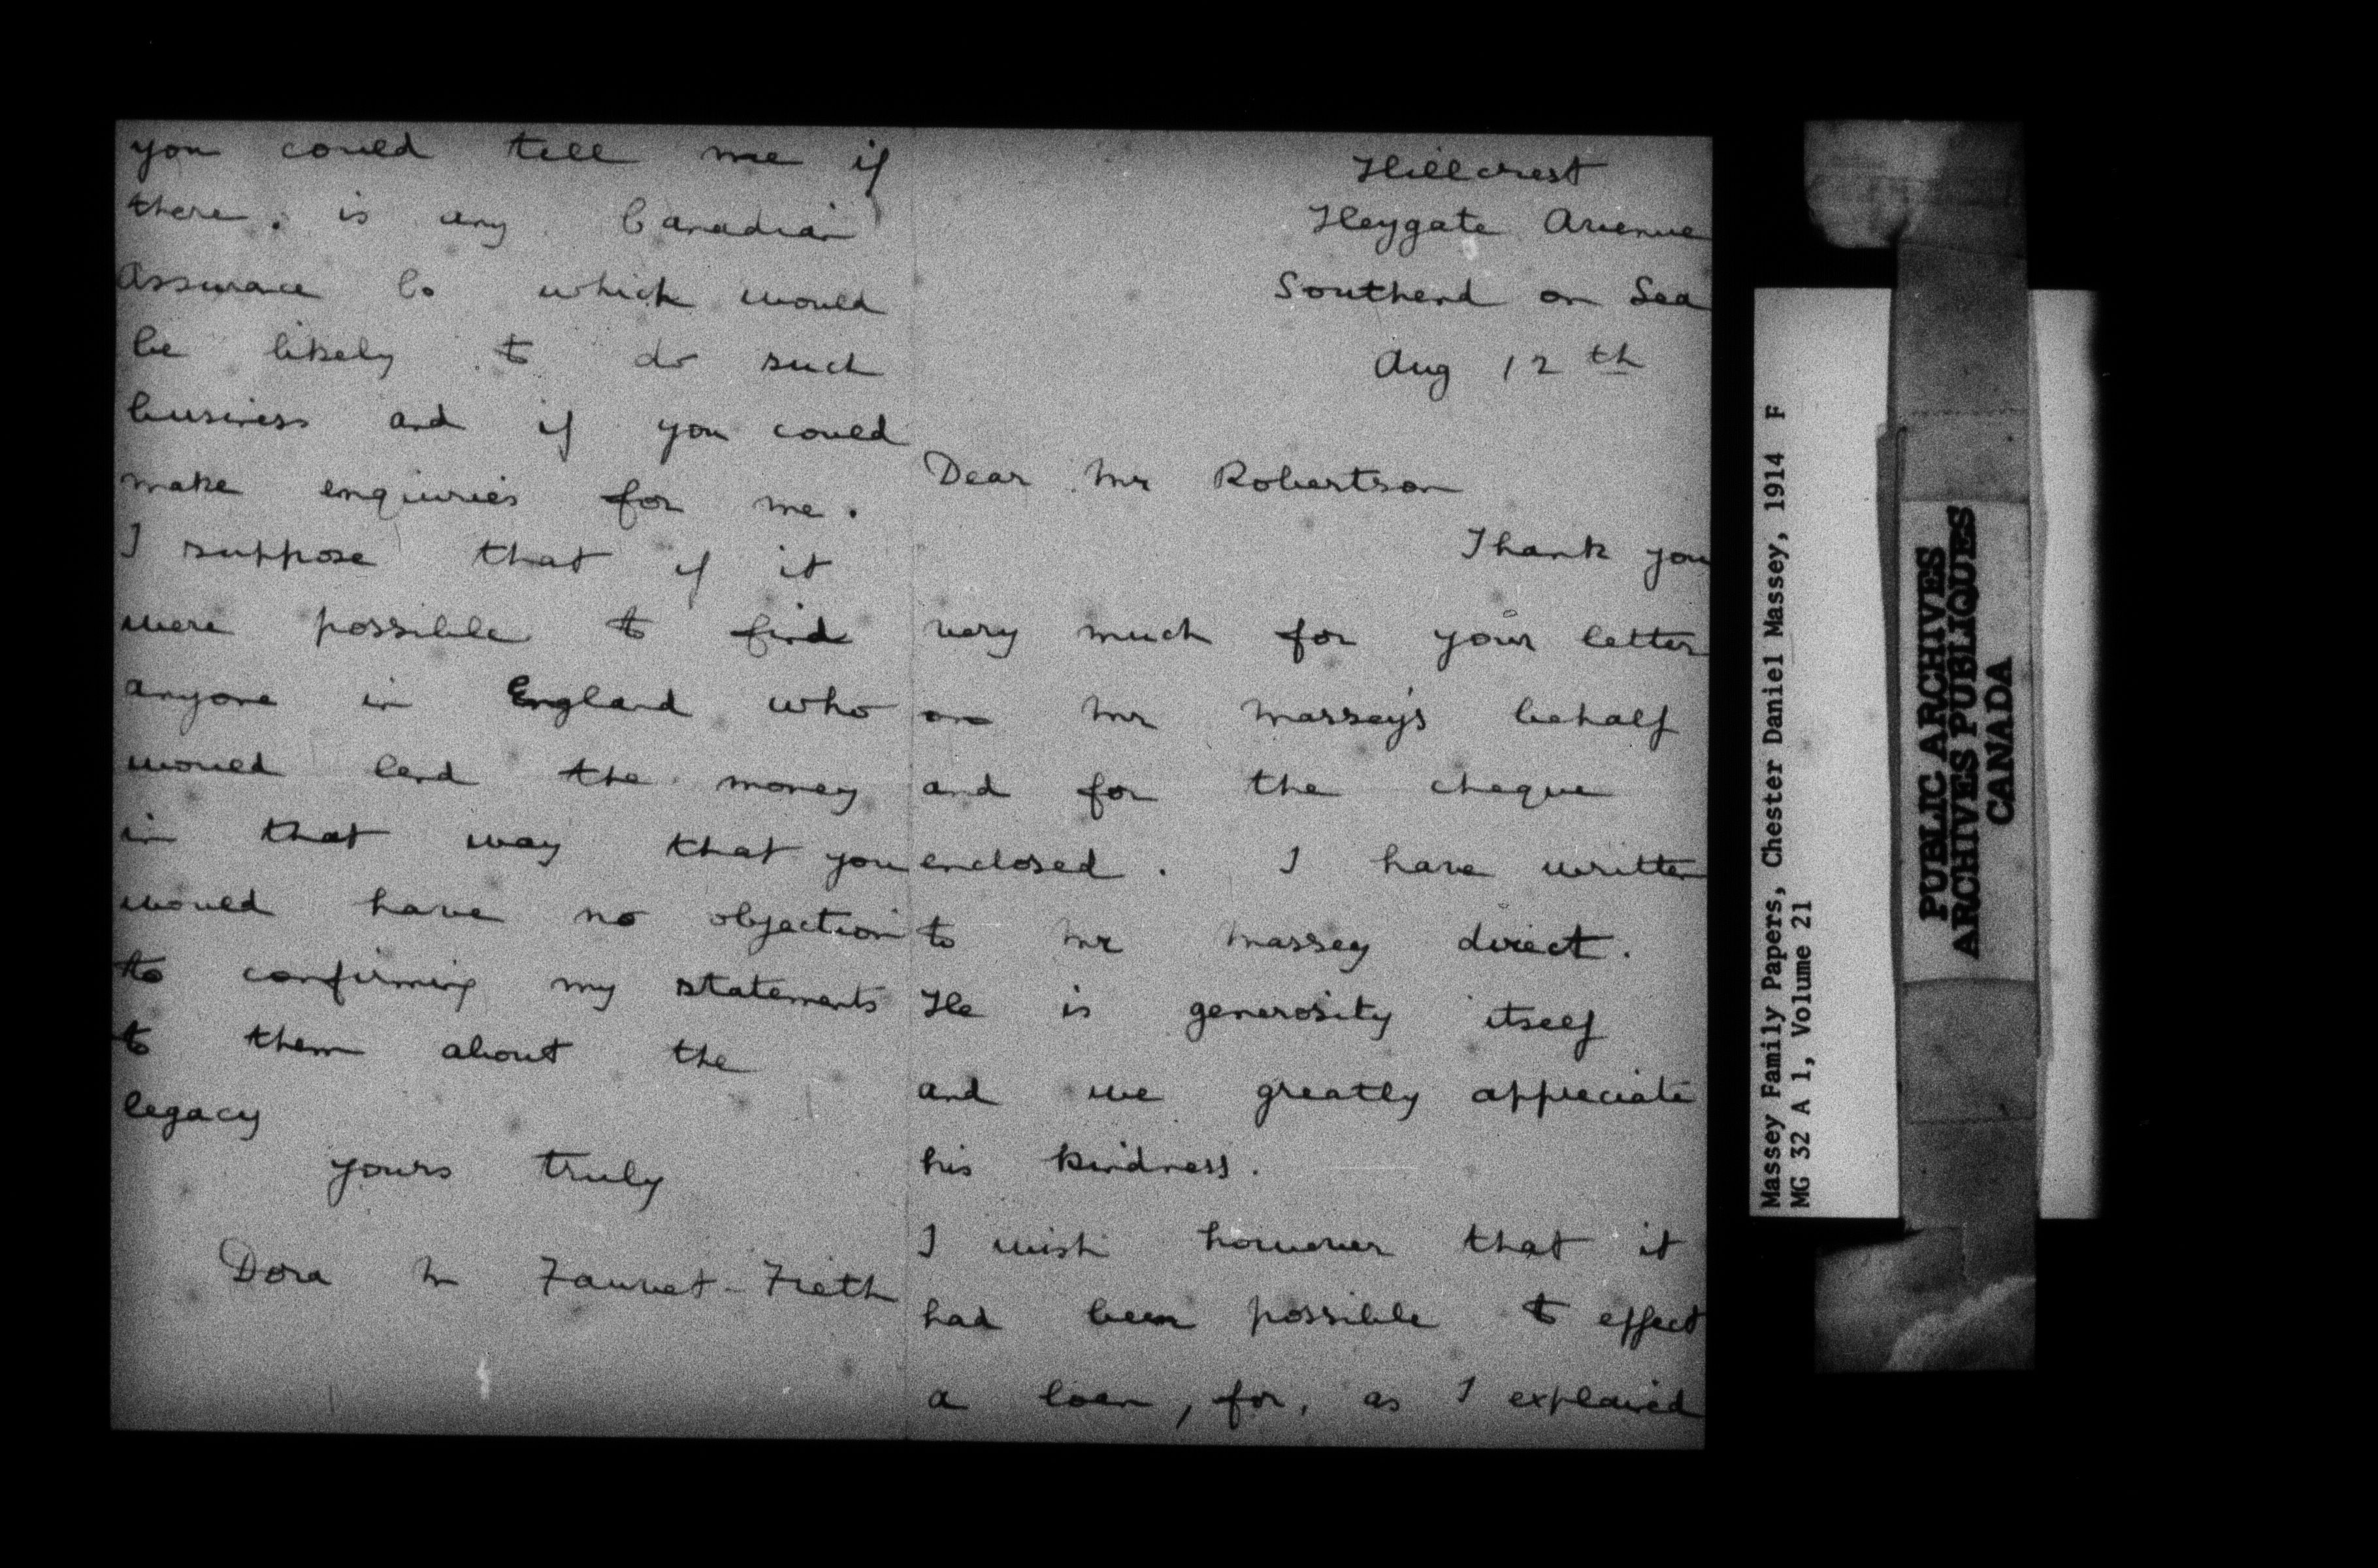 you could tell me if
there. is any Canadian
Assurace Co which would
be likely to do such
business and if you could
make enquiries for me.
I suppose that if it
were possible to find
anyone in England who
would lend the money
in that way that you
would have no objection
to confirming my statements
to them about the
legacy
yours truly
Dora M Fauvet-Freth
Hillcrest
Heygate Avenue
Southend on Sea
Aug 12th
Dear Mr Robertson
Thank you
very much for your letter
on Mr Massey's behalf
and for the cheque
enclosed. I have written
to Mr Massey direct.
He is generosity itself
and we greatly appreciate
his kindness.
I wish however that it
had been possible to effect
a loan, for, as I explained
Massey Family Papers, Chester Daniel Massey, 1914 F
MG 32 A 1, Volume 21
PUBLIC ARCHIVES
ARCHIVES PUBLIQUES
CANADA